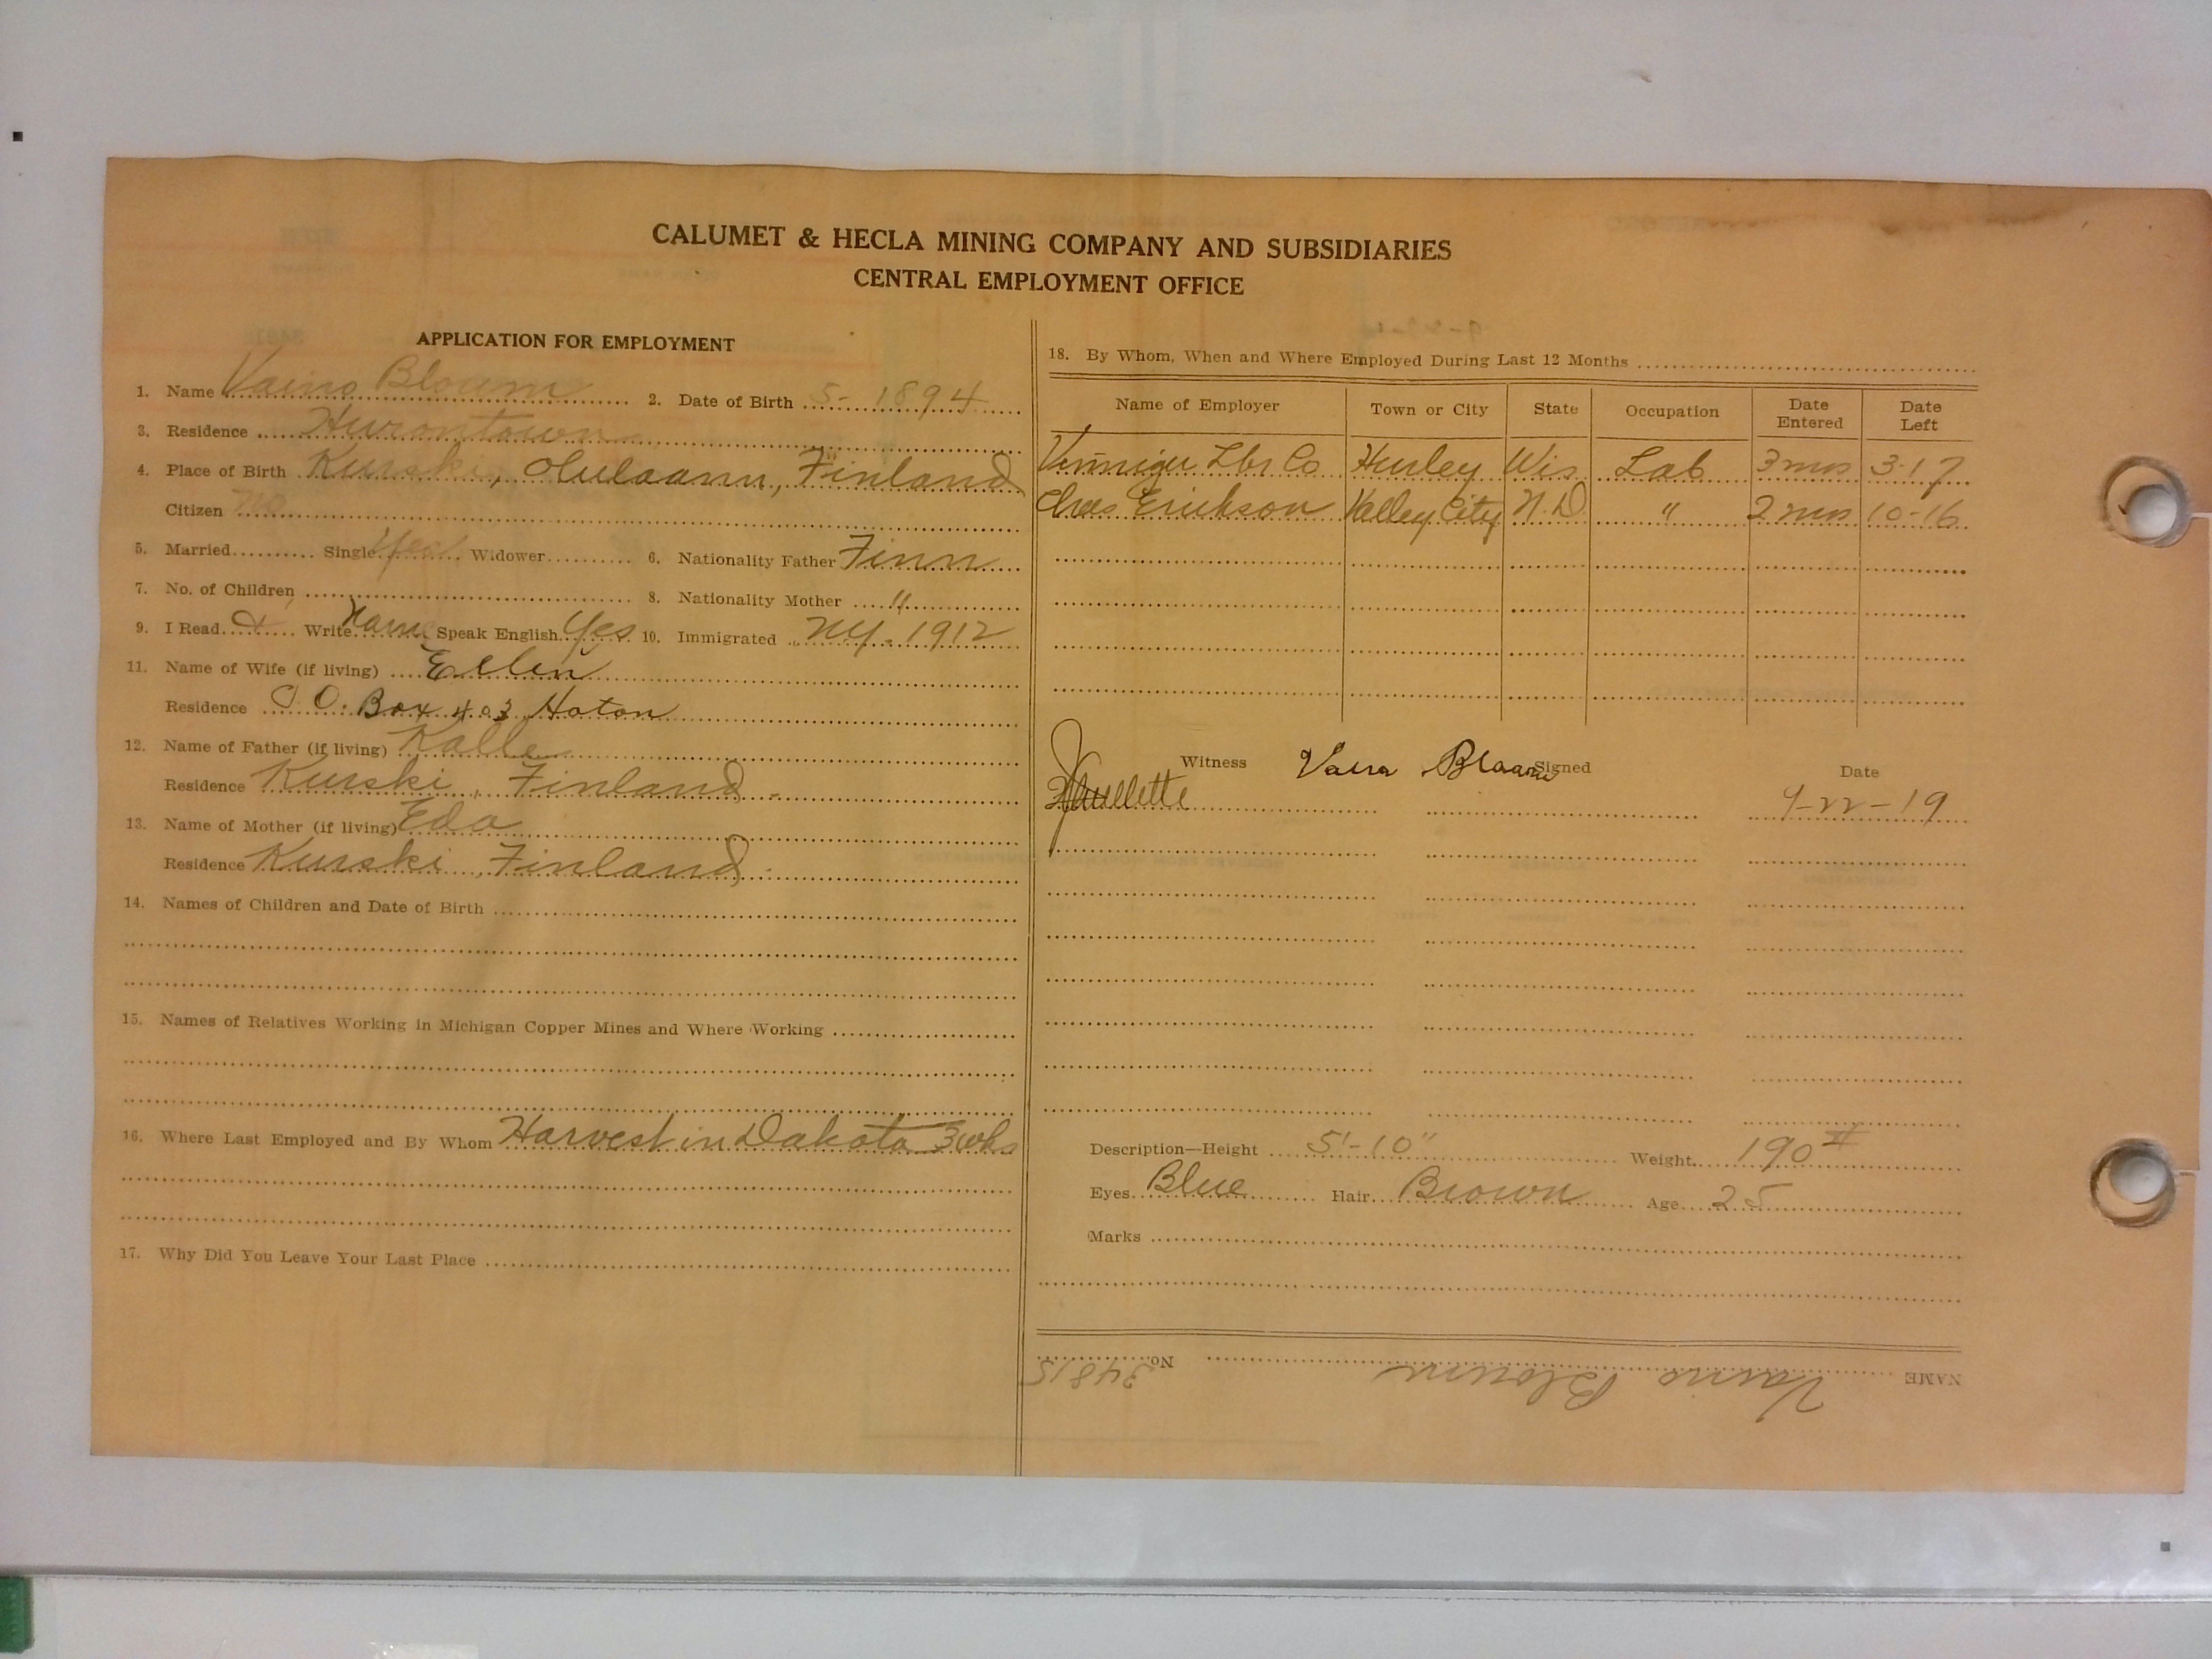 CALUMET & HECLA MINING COMPANY AND SUBSIDIARIES
CENTRAL EMPLOYMENT OFFICE
APPLICATION FOR EMPLOYMENT
1. Name Vaino Bloum 2. Date of Birth 5- 1894
3. Residence Hurontown
4. Place of Birth Kurski, Oluläänn, Finland
Citizen No
5. Married Single Yes Widower 6. Nationality Father Finn
7. No. of Children 8. Nationality Mother "
9. I Read Write Name Speak English Yes 10. Immigrated NY. 1912
11. Name of Wife (if living) Ellen
Residence P.O. Box 403 Hoton
12. Name of Father (if living) Kalle
Residence Kurski, Finland
13. Name of Mother (if living) Eda
Residence Kurski, Finland
14. Names of Children and Date of Birth
15. Names of Relatives Working in Michigan Copper Mines and Where Working
16. Where Last Employed and By Whom Harvest in Dakota 3 wks
17. Why Did You Leave Your Last Place
18. By Whom, When and Where Employed During Last 12 Months
Name of Employer Town or City State Occupation Date Entered Date Left
Lbr Co Hurley Wis Lab 3 mos 3-17
Chas Erickson Valley City N.D. " 2 mos 10-16
Witness Signed Date
9-22-19
Description—Height 5'-10" Weight 190#
Eyes Blue Hair Brown Age 25
Marks
NAME Vaino Bloum No. 34815